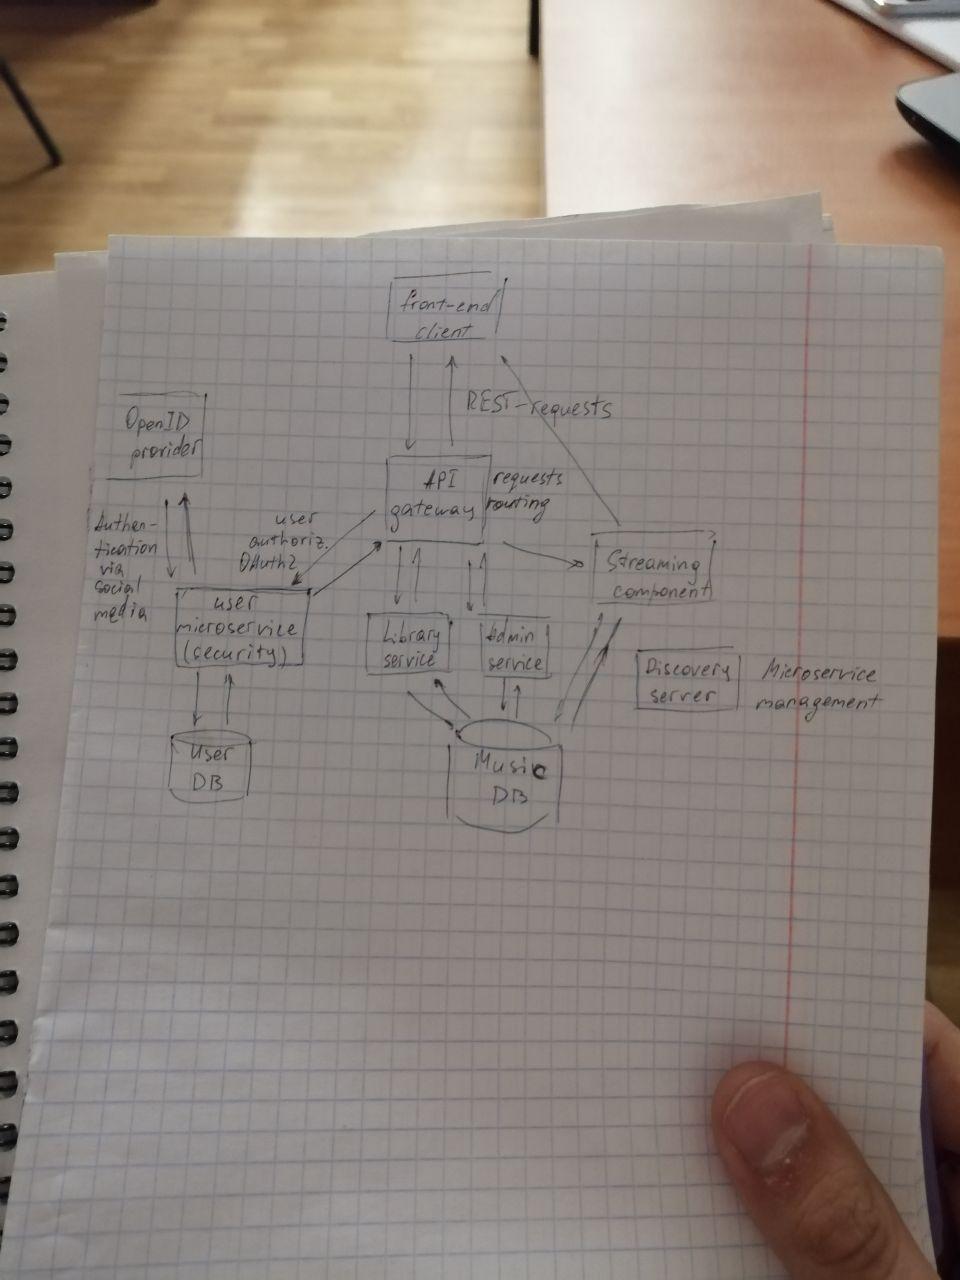 front-end
client
REST-requests
OpenID
provider
API
gateway
requests
routing
Authen-
tication
via
social
media
user
authoriz.
OAuth2
Streaming
component
user
microservice
(security)
Library
service
Admin
service
Discovery
server
Microservice
management
User
DB
Music
DB